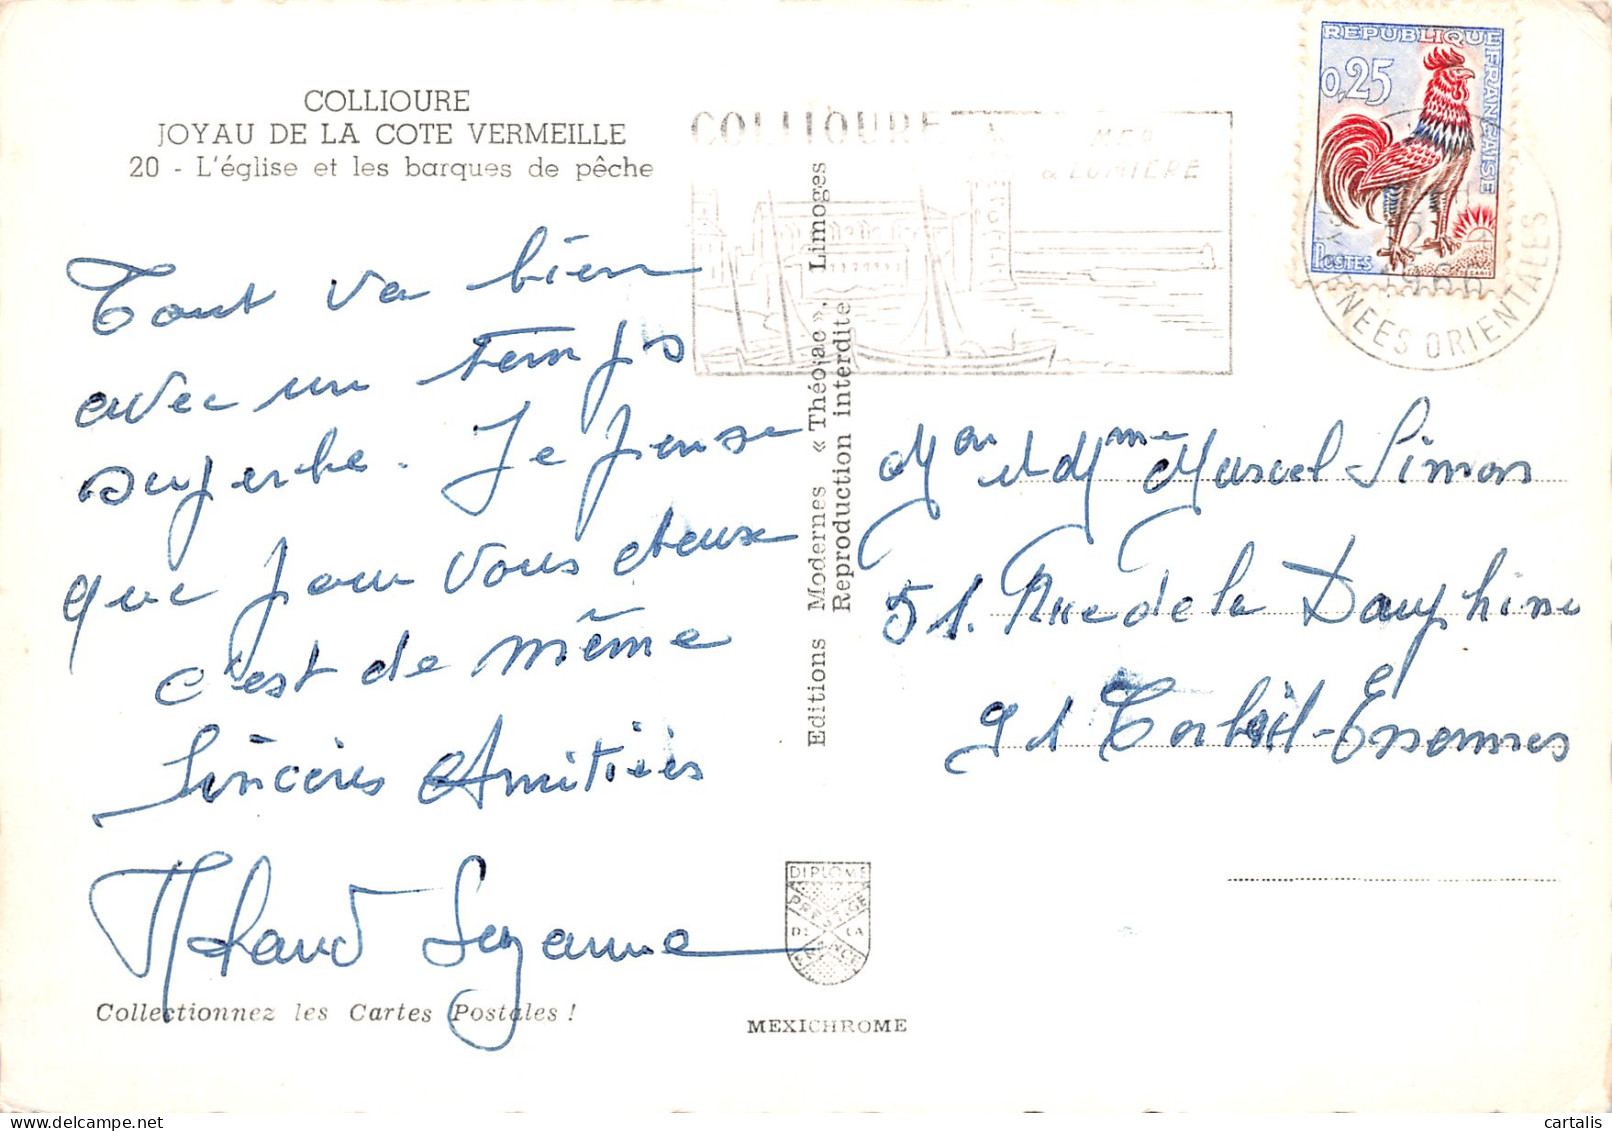 COLLIOURE
JOYAU DE LA COTE VERMEILLE
20 - L'église et les barques de pêche
Tout va bien
avec un temps
superbe. Je pense
que pour vous deux
c'est de même
Sincères Amitiés
Suzanne
Collectionnez les Cartes Postales !
COLLIOURE
MER
& LUMIÈRE
Editions Modernes « Théojac », Limoges
Reproduction interdite
DIPLOME
PRESTIGE
DE LA
FRANCE
MEXICHROME
REPUBLIQUE FRANÇAISE
0,25
POSTES
PYRENEES ORIENTALES
Mon et Mme Marcel Simon
51. Rue de la Dauphine
91 Corbeil-Essonnes
cartalis